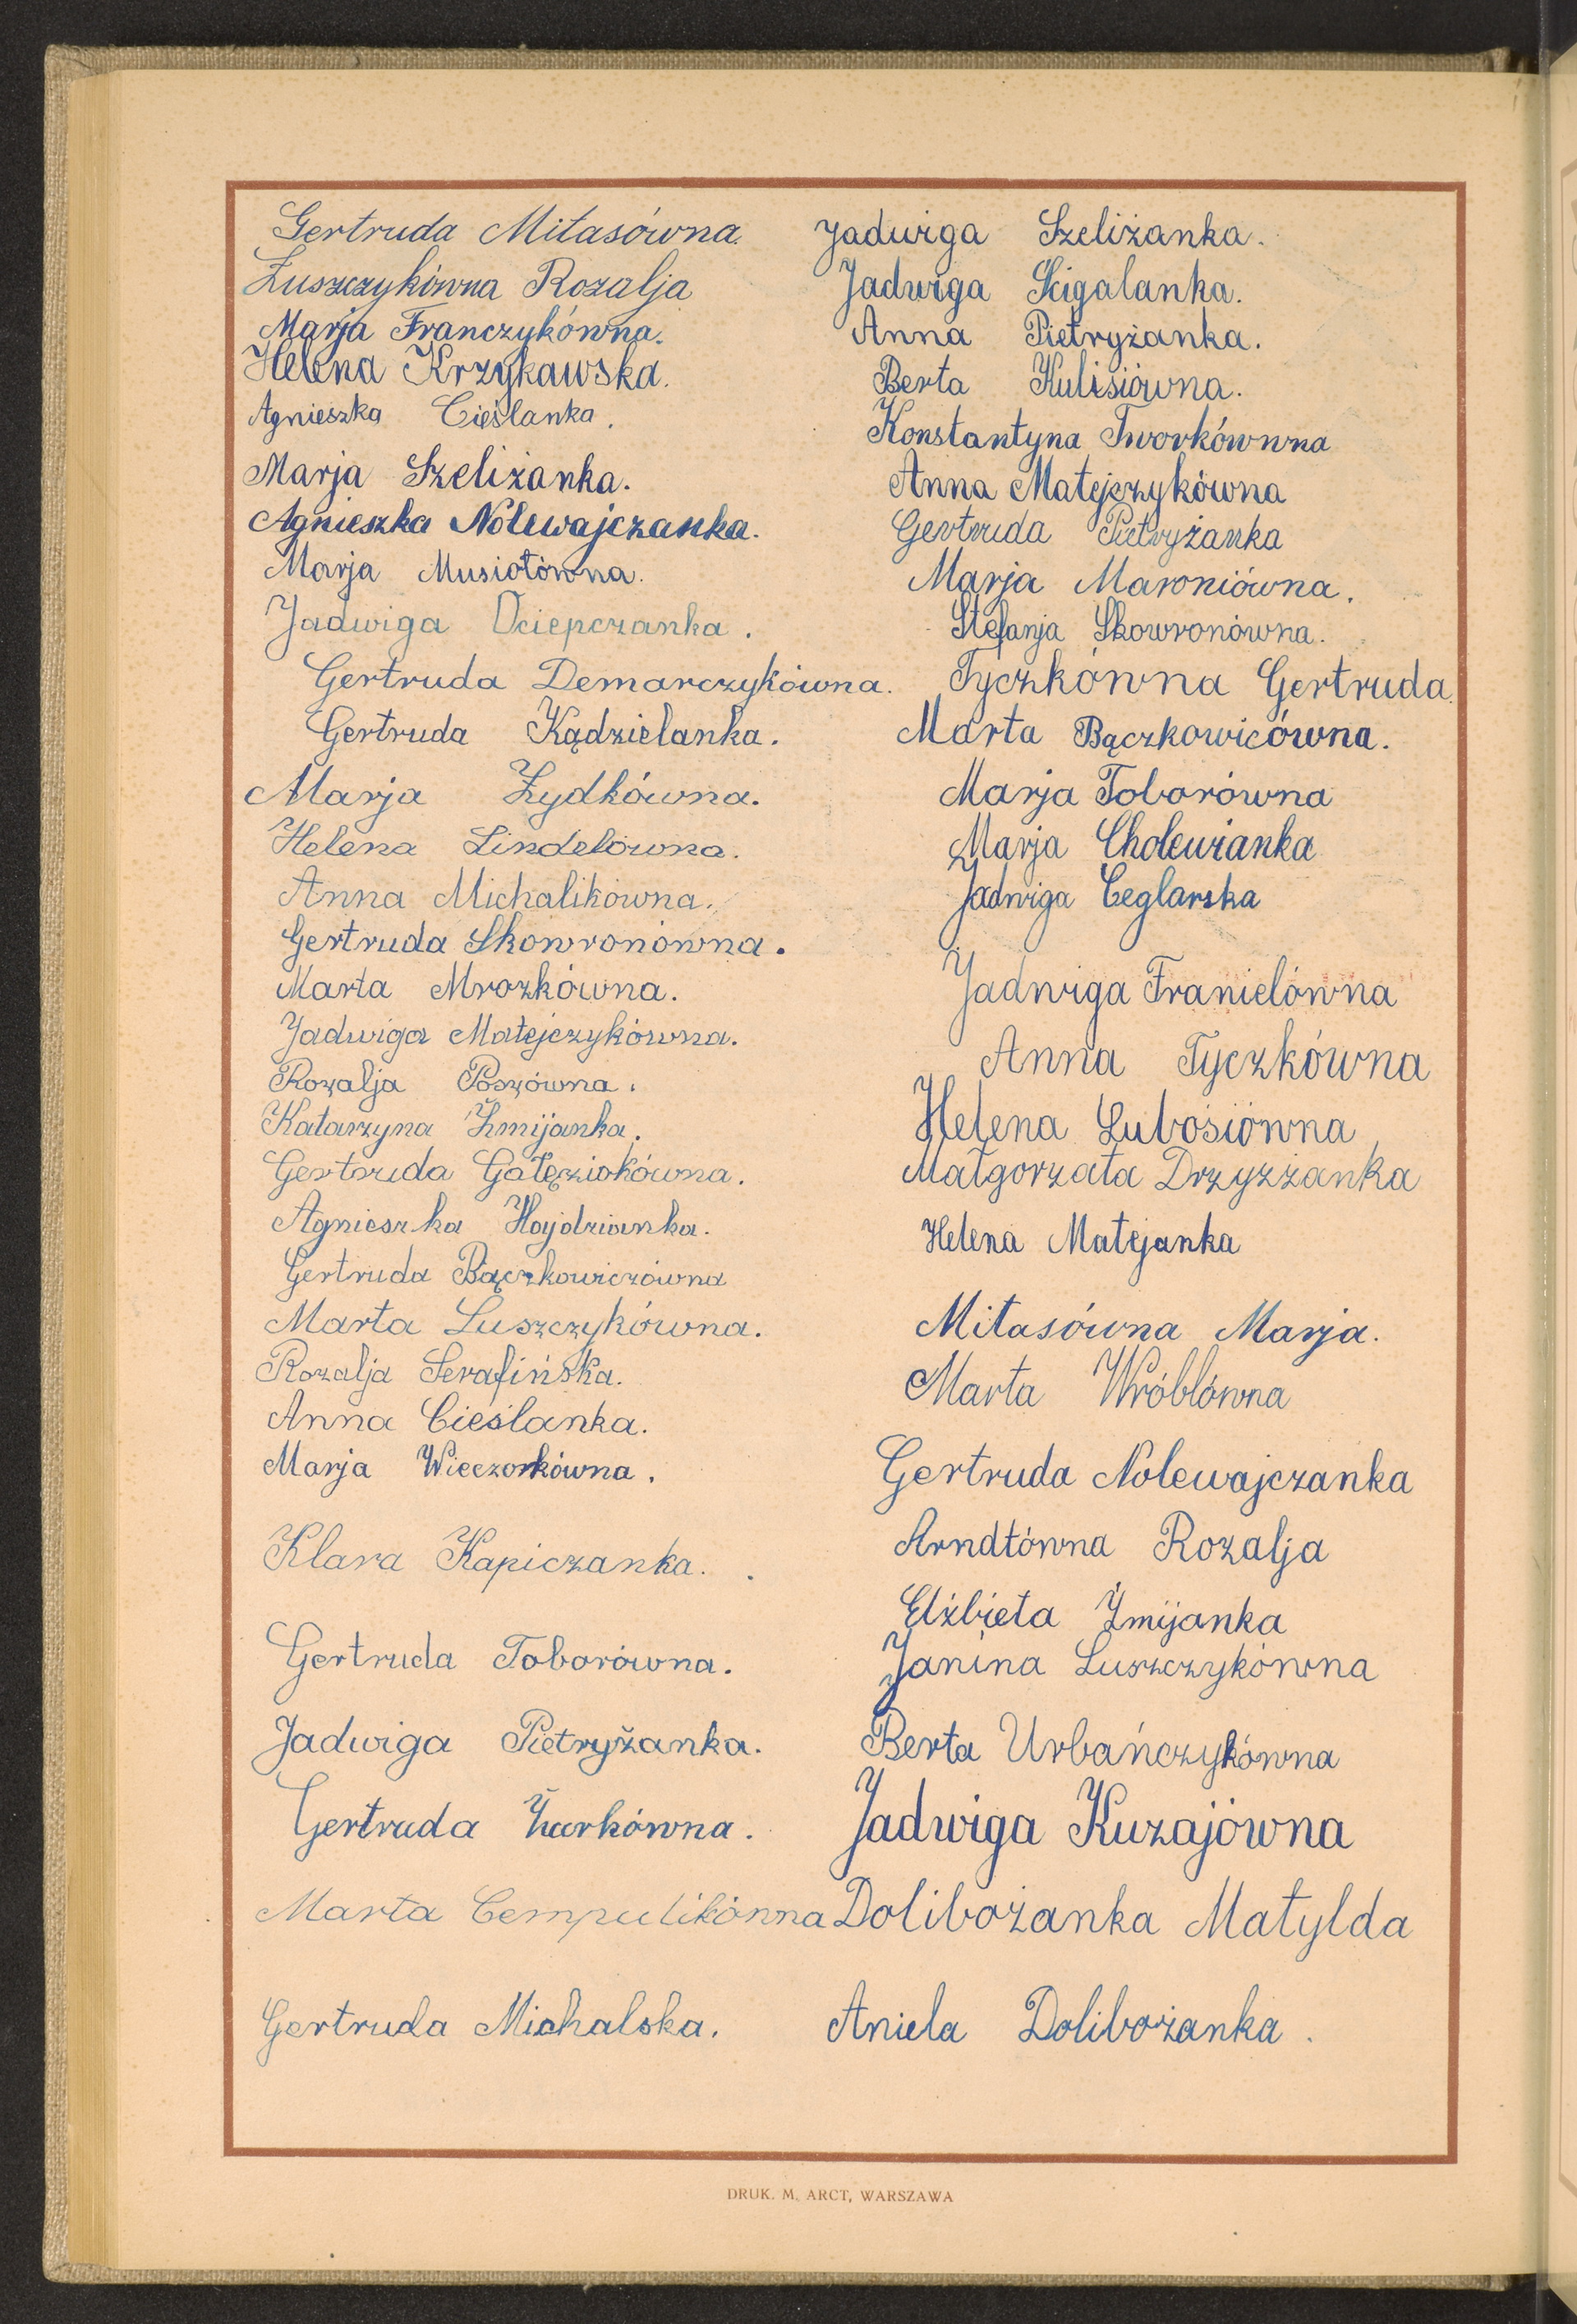 Gertruda Mitasówna.
Łuszczykówna Rozalja
Marja Franczykówna.
Helena Krzykawska.
Agnieszka Cieślanka.
Marja Szeliżanka.
Agnieszka Nolewajczanka.
Marja Musiołówna.
Jadwiga Ociepczanka.
Gertruda Demarczykówna.
Gertruda Kądzielanka.
Marja Żydkówna.
Helena Lindelówna.
Anna Michalikówna.
Gertruda Skowronówna.
Marta Mrozkówna.
Jadwiga Matejczykówna.
Rozalja Poszówna.
Katarzyna Żmijanka.
Gertruda Gałęziokówna.
Agnieszka Hajdzianka.
Gertruda Bączkowiczówna
Marta Luszczykówna.
Rozalja Serafińska.
Anna Cieślanka.
Marja Wieczorkówna.
Klara Kapiczanka.
Gertruda Toborówna.
Jadwiga Pietryżanka.
Gertruda Żurkówna.
Marta Cempulikówna
Gertruda Michalska.
Jadwiga Szeliżanka.
Jadwiga Ścigalanka.
Anna Pietryżanka.
Berta Kulisiówna.
Konstantyna Tworkównna
Anna Matejczykówna
Gertruda Pietryżanka
Marja Maroniówna.
Stefanja Skowronówna.
Tyczkówna Gertruda.
Marta Bączkowicówna.
Marja Toborówna
Marja Cholewianka
Jadwiga Ceglarska
Jadwiga Franielówna
Anna Tyczkówna
Helena Lubosiówna
Małgorzata Drzyzżanka
Helena Matejanka
Mitasówna Marja.
Marta Wróblówna
Gertruda Nolewajczanka
Arndtówna Rozalja
Elżbieta Żmijanka
Janina Luszczykówna
Berta Urbańczykówna
Jadwiga Kuzajówna
Dolibożanka Matylda
Aniela Dolibożanka.
DRUK. M. ARCT, WARSZAWA